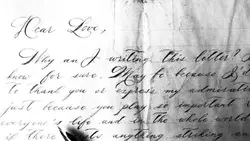 Dear Love,
Why am I writing this letter? I
know for sure. May be because I
to thank you or express my admiration
just because you play so important
everyone's life and in the whole world
if there anything striking an